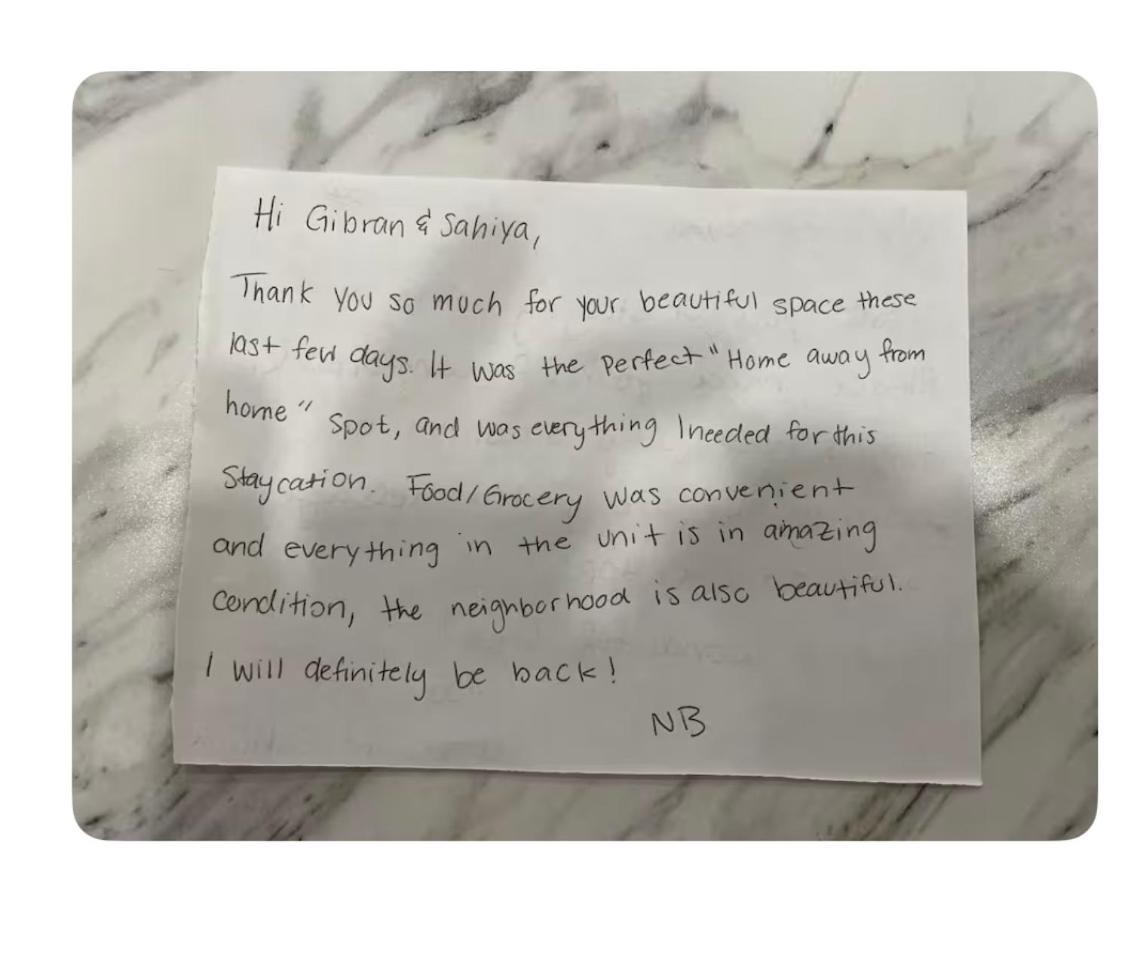 Hi Gibran & Sahiya,
Thank you so much for your beautiful space these
last few days. It was the perfect "Home away from
home" spot, and was everything I needed for this
Staycation. Food/Grocery was convenient
and everything in the unit is in amazing
condition, the neighborhood is also beautiful.
I will definitely be back!
NB